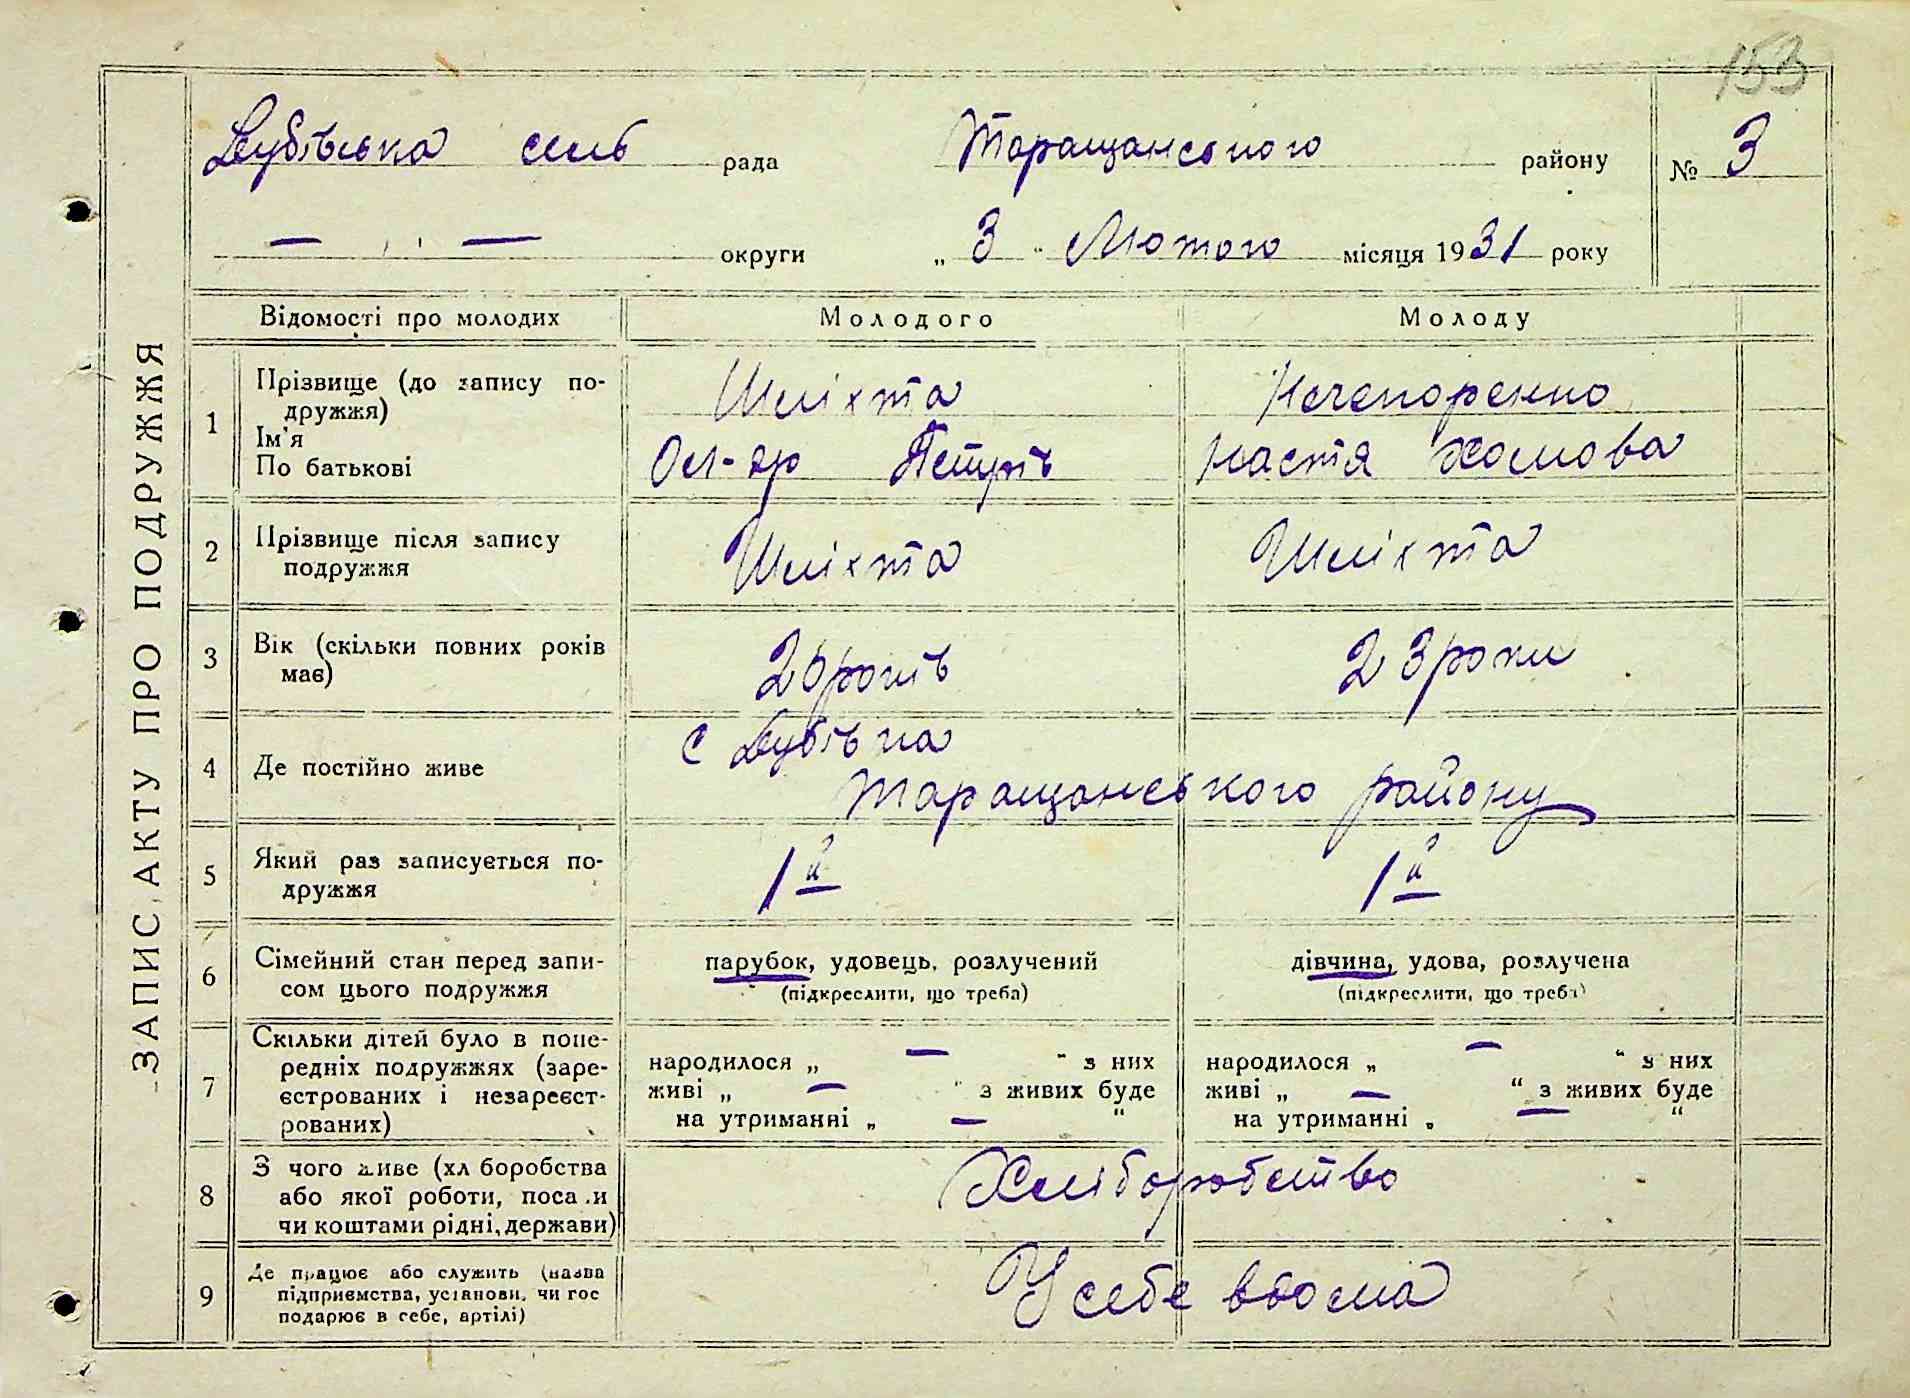 153
Дубівська сель рада Таращанського району № 3
— — округи „ 3 “ Лютого місяця 1931 року
ЗАПИС АКТУ ПРО ПОДРУЖЖЯ
Відомості про молодих Молодого Молоду
1 Прізвище (до запису по- Шліхта Нечепоренко
дружжя)
Ім'я
По батькові Ол-др Петрів Настя Хомова
2 Прізвище після запису Шліхта Шліхта
подружжя
3 Вік (скільки повних років 20 років 23 роки
має)
с Дубівка
4 Де постійно живе Таращанського району
5 Який раз записується по- 1й 1й
дружжя
6 Сімейний стан перед запи- парубок, удовець, розлучений дівчина, удова, розлучена
сом цього подружжя (підкреслити, що треба) (підкреслити, що треба)
7 Скільки дітей було в попе-
редніх подружжях (заре- народилося „ — “ з них народилося „ — “ з них
єстрованих і незареєст- живі „ — “ з живих буде живі „ — “ з живих буде
рованих) на утриманні „ — “ на утриманні „ — “
8 З чого живе (хліборобства Хліборобство
або якої роботи, посади
чи коштами рідні, держави)
9 Де працює або служить (назва У себе вдома
підприємства, установи, чи гос
подарює в себе, артілі)